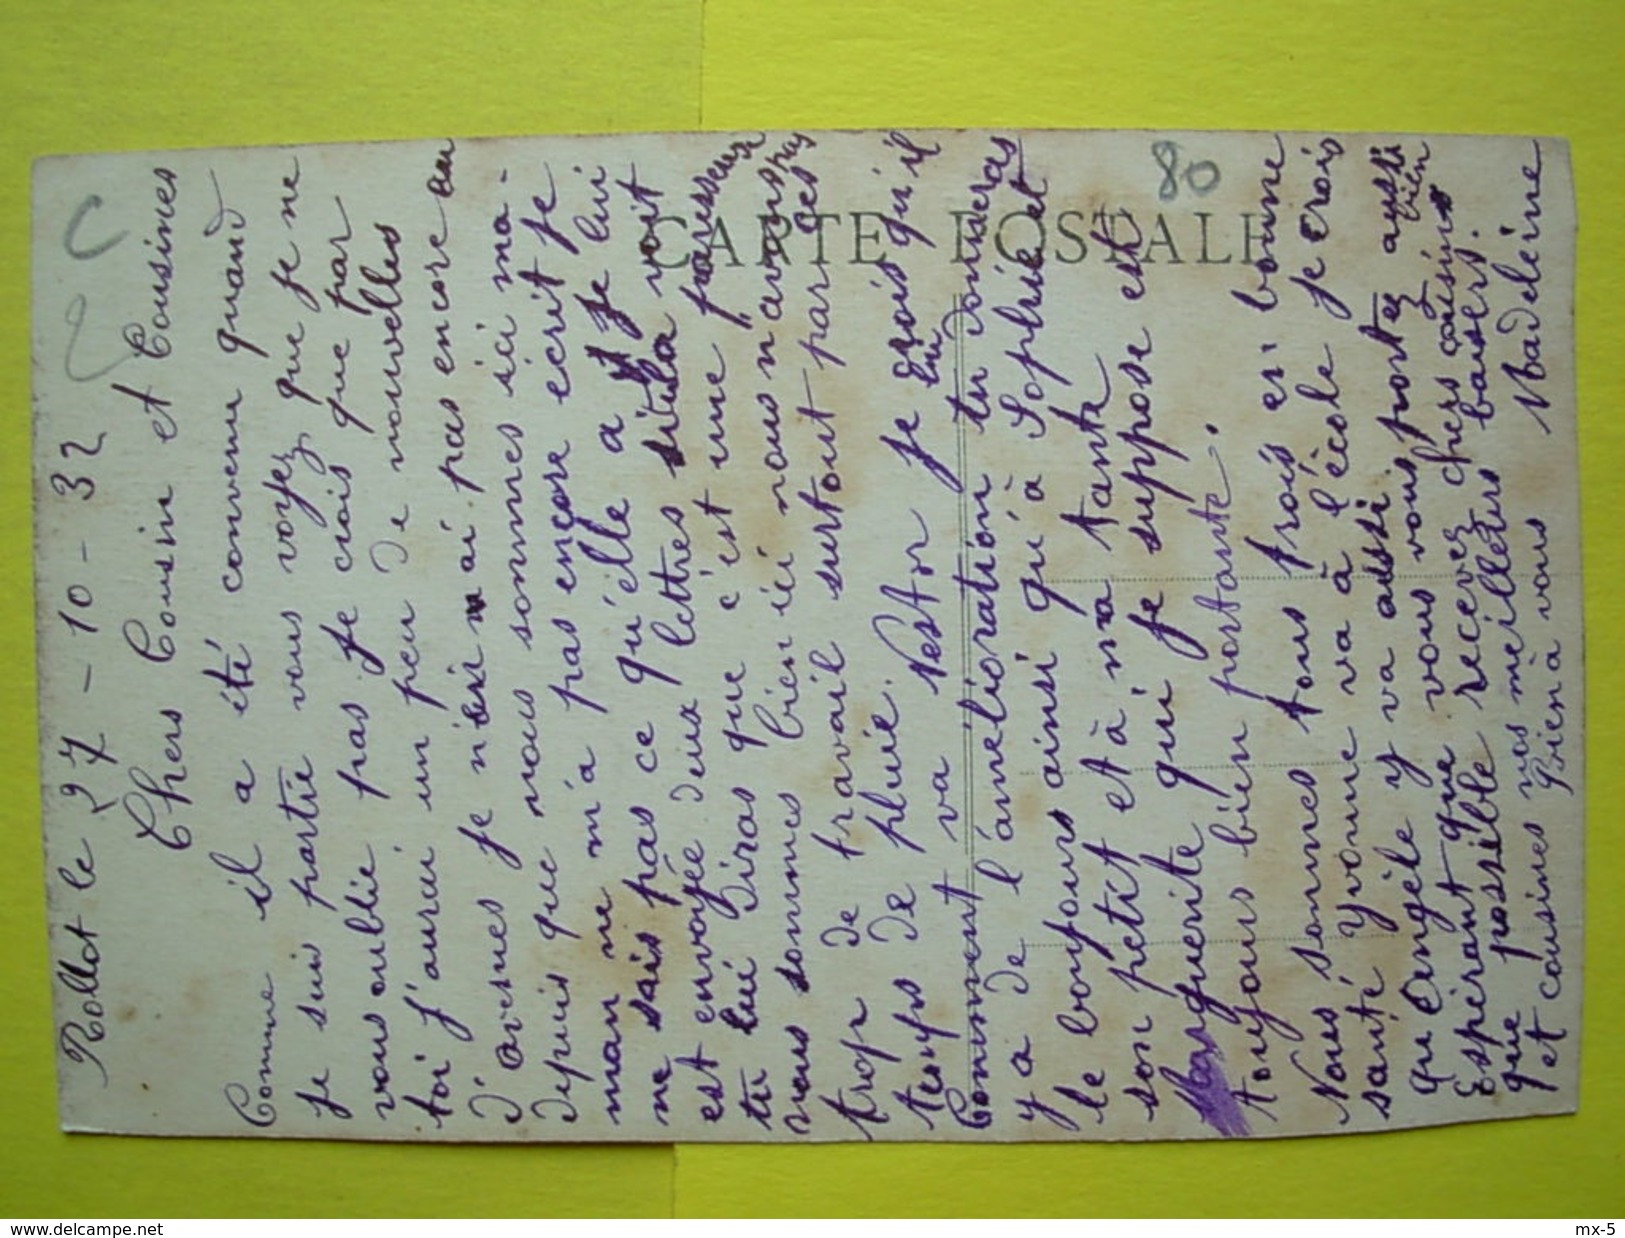 Rollot le 27-10-32
Chers Cousin et Cousines
Comme il a été convenu quand
je suis partie vous voyez que je ne
vous oublie pas je crois que par
toi j'aurai un peu de nouvelles
d'avesnes je n'en ai pas encore eu
depuis que nous sommes ici ma-
man ne m'a pas encore écrit je
ne sais pas ce qu'elle a je lui
est envoyée deux lettres si tu la voit
tu lui diras que c'est une paresseuse
nous sommes bien ici nous n'avons pas
trop de travail surtout par ces
temps de pluie.
Comment va Nestor je crois qu'il
y a de l'amélioration tu lui donneras
le bonjours ainsi qu'à Sophie et
son petit et à ma tante
Marguerite qui je suppose est
toujours bien portante.
Nous sommes tous trois en bonne
santé Yvonne va à l'école je crois
qu'Angèle y va aussi
Espérant que vous vous portez aussi bien
que possible recevez chers cousins
et cousines nos meilleurs baisers.
Bien à vous Madeleine
CARTE POSTALE
80
www.delcampe.net
mx-5